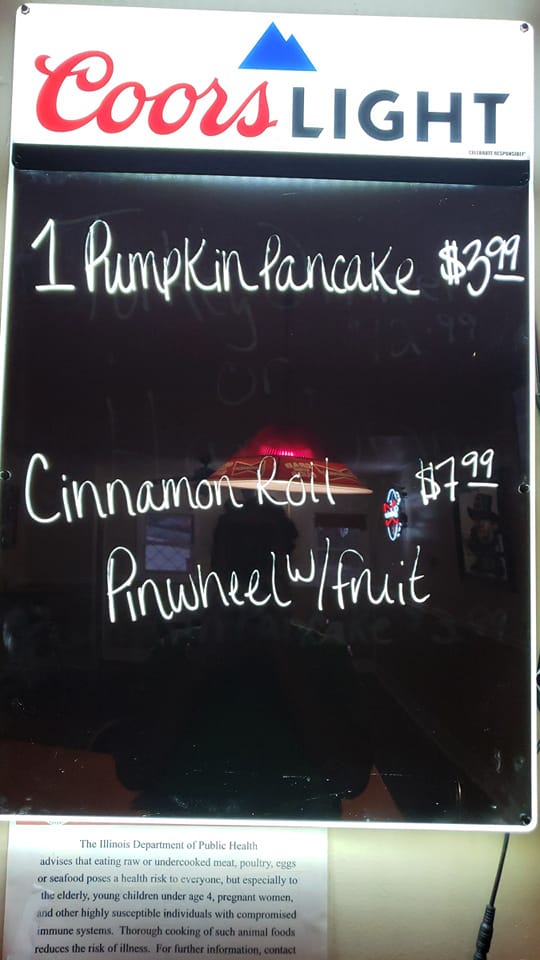 Coors LIGHT
CELEBRATE RESPONSIBLY
1 Pumpkin Pancake $3.99
Cinnamon Roll $7.99
Pinwheel w/fruit
The Illinois Department of Public Health
advises that eating raw or undercooked meat, poultry, eggs
or seafood poses a health risk to everyone, but especially to
the elderly, young children under age 4, pregnant women,
and other highly susceptible individuals with compromised
immune systems. Thorough cooking of such animal foods
reduces the risk of illness. For further information, contact